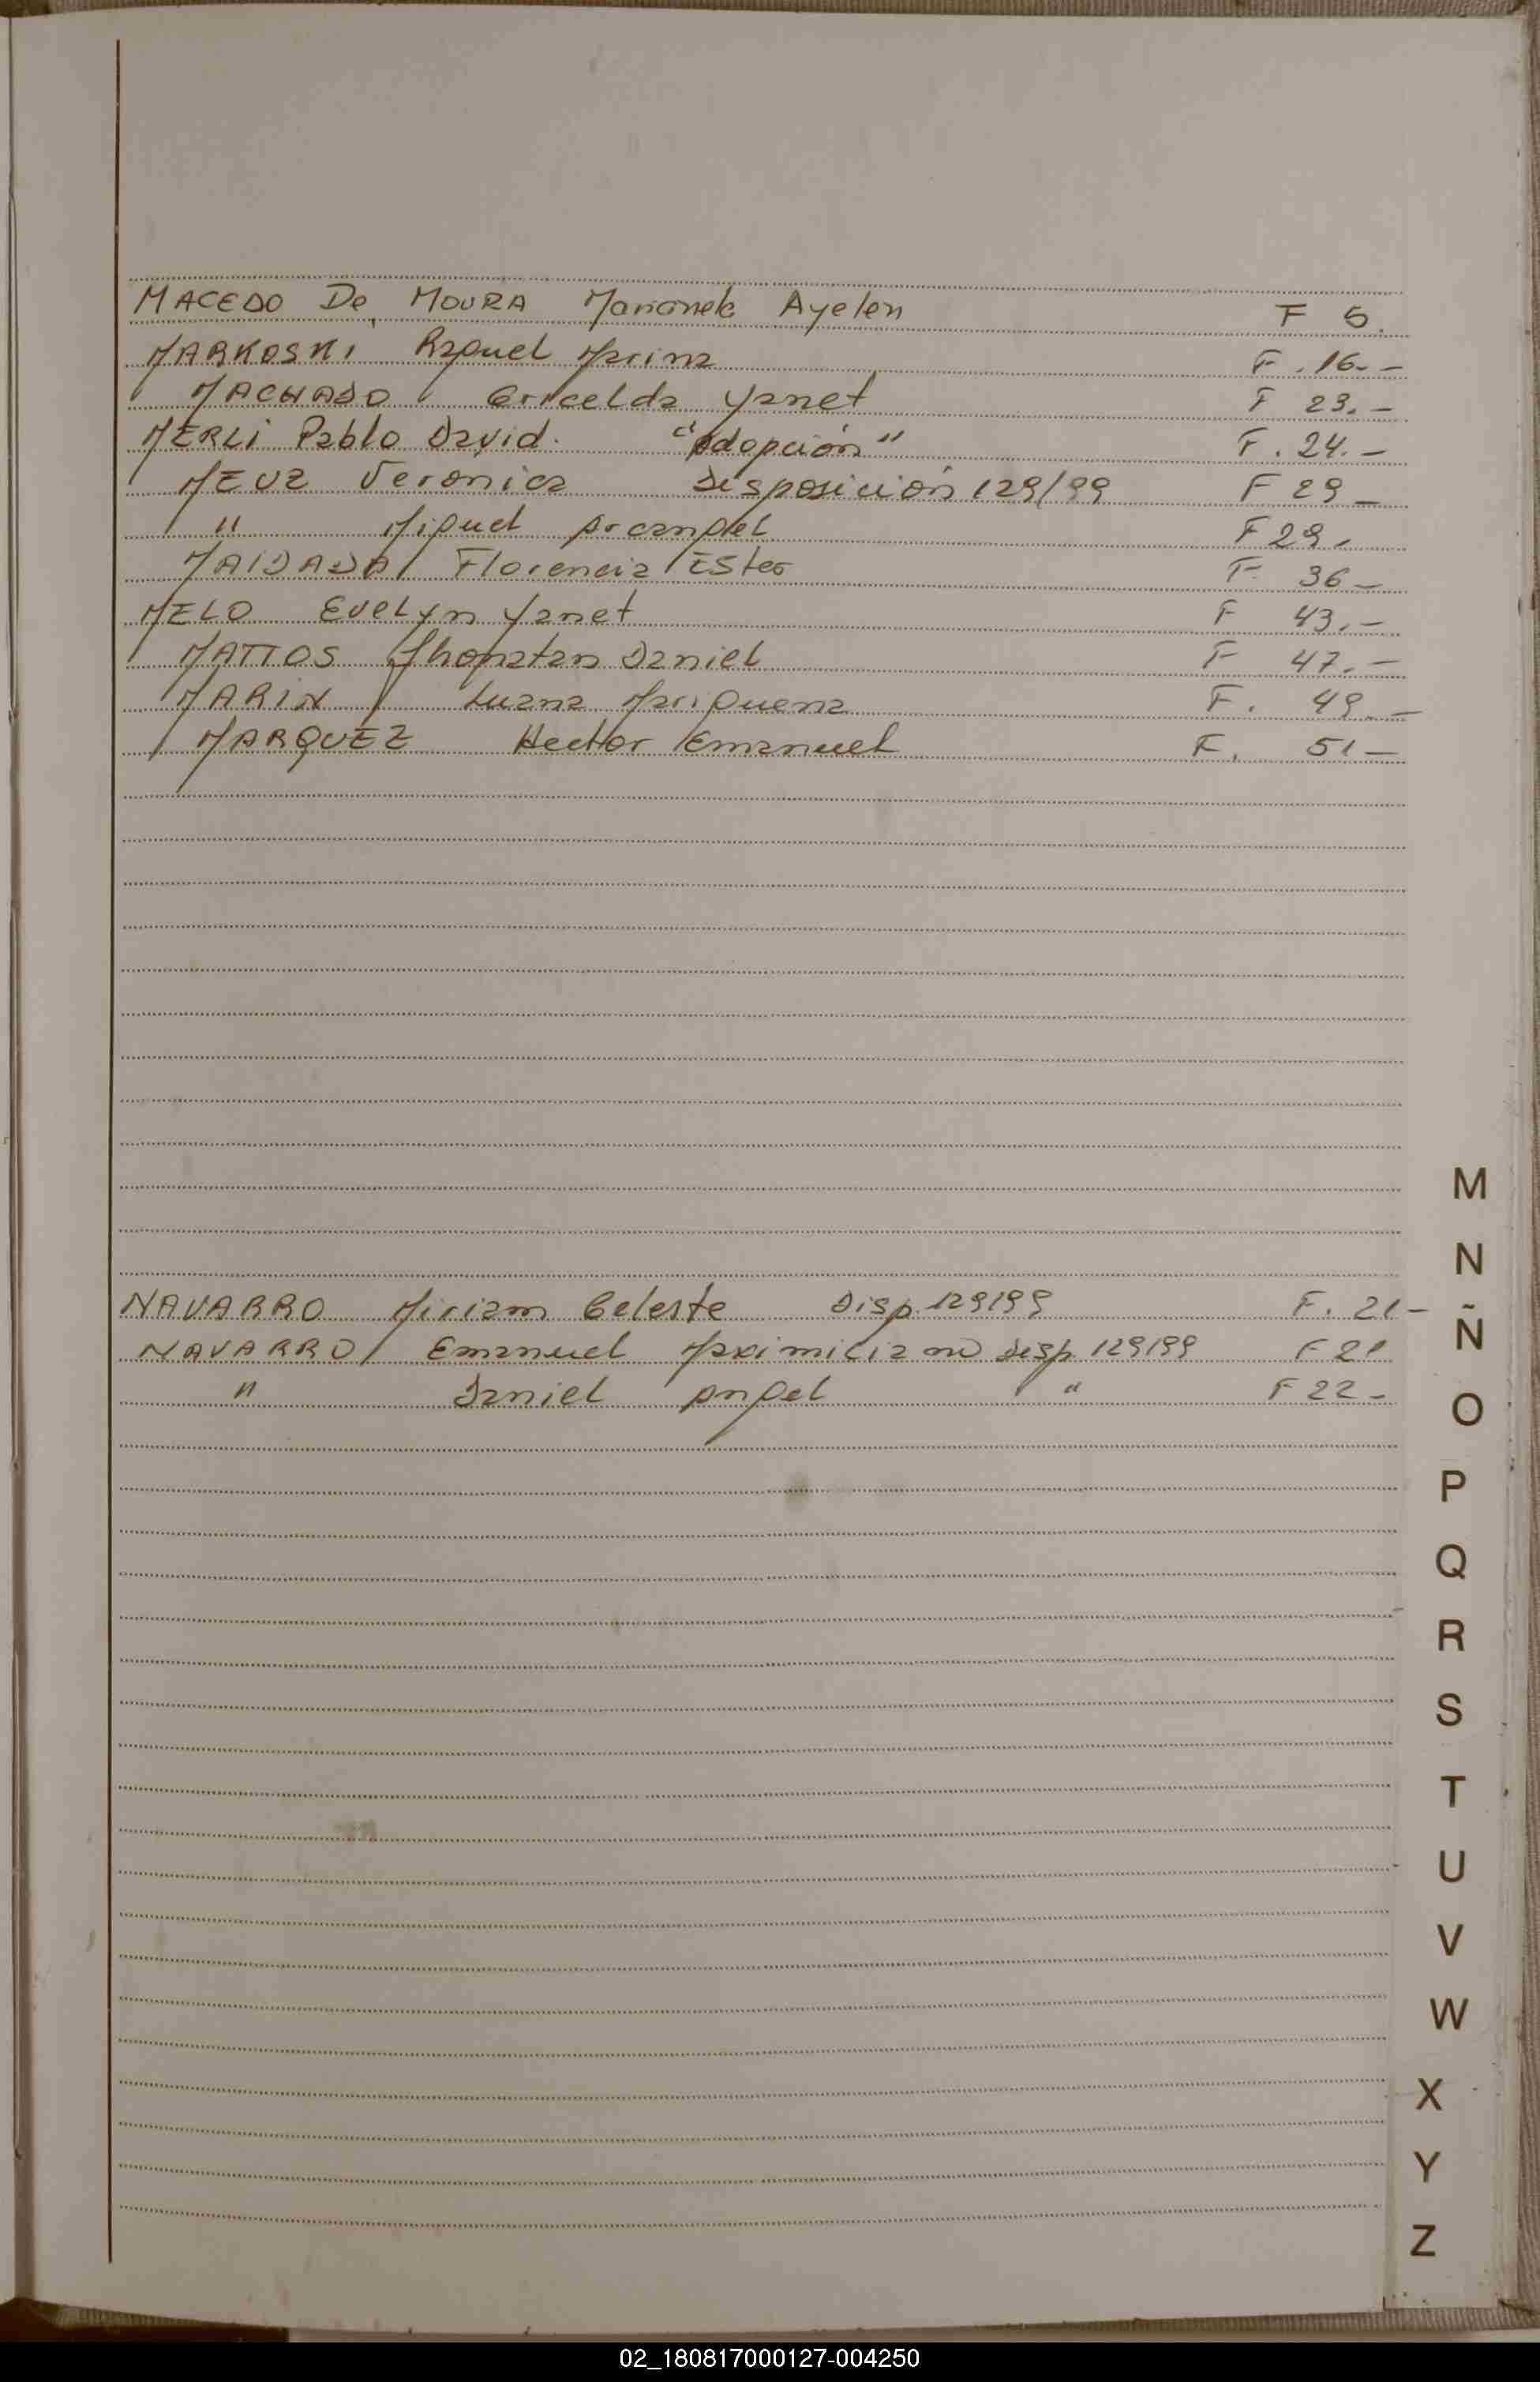 MACEDO De MOURA Marianela Ayelen F 5.
MARKOSKI Raquel Marina F. 16.-
MACHADO Griselda Yanet F 23.-
MERLI Pablo David. "Adopción" F. 24.-
Veronica Disposición 129/99 F 29-
" Miguel Arcangel F 29.
MAIDANA Florencia Ester F. 36-
MELO Evelyn Yanet F 43.-
MATTOS Jhonatan Daniel F 47.-
MARIN Luana F. 49.-
MARQUEZ Hector Emanuel F. 51-
NAVARRO Miriam Celeste Disp. 129199 F. 21-
NAVARRO Emanuel Maximiliano Disp. 129199 F 21
" Daniel Angel " F 22-
M
N
Ñ
O
P
Q
R
S
T
U
V
W
X
Y
Z
02_180817000127-004250